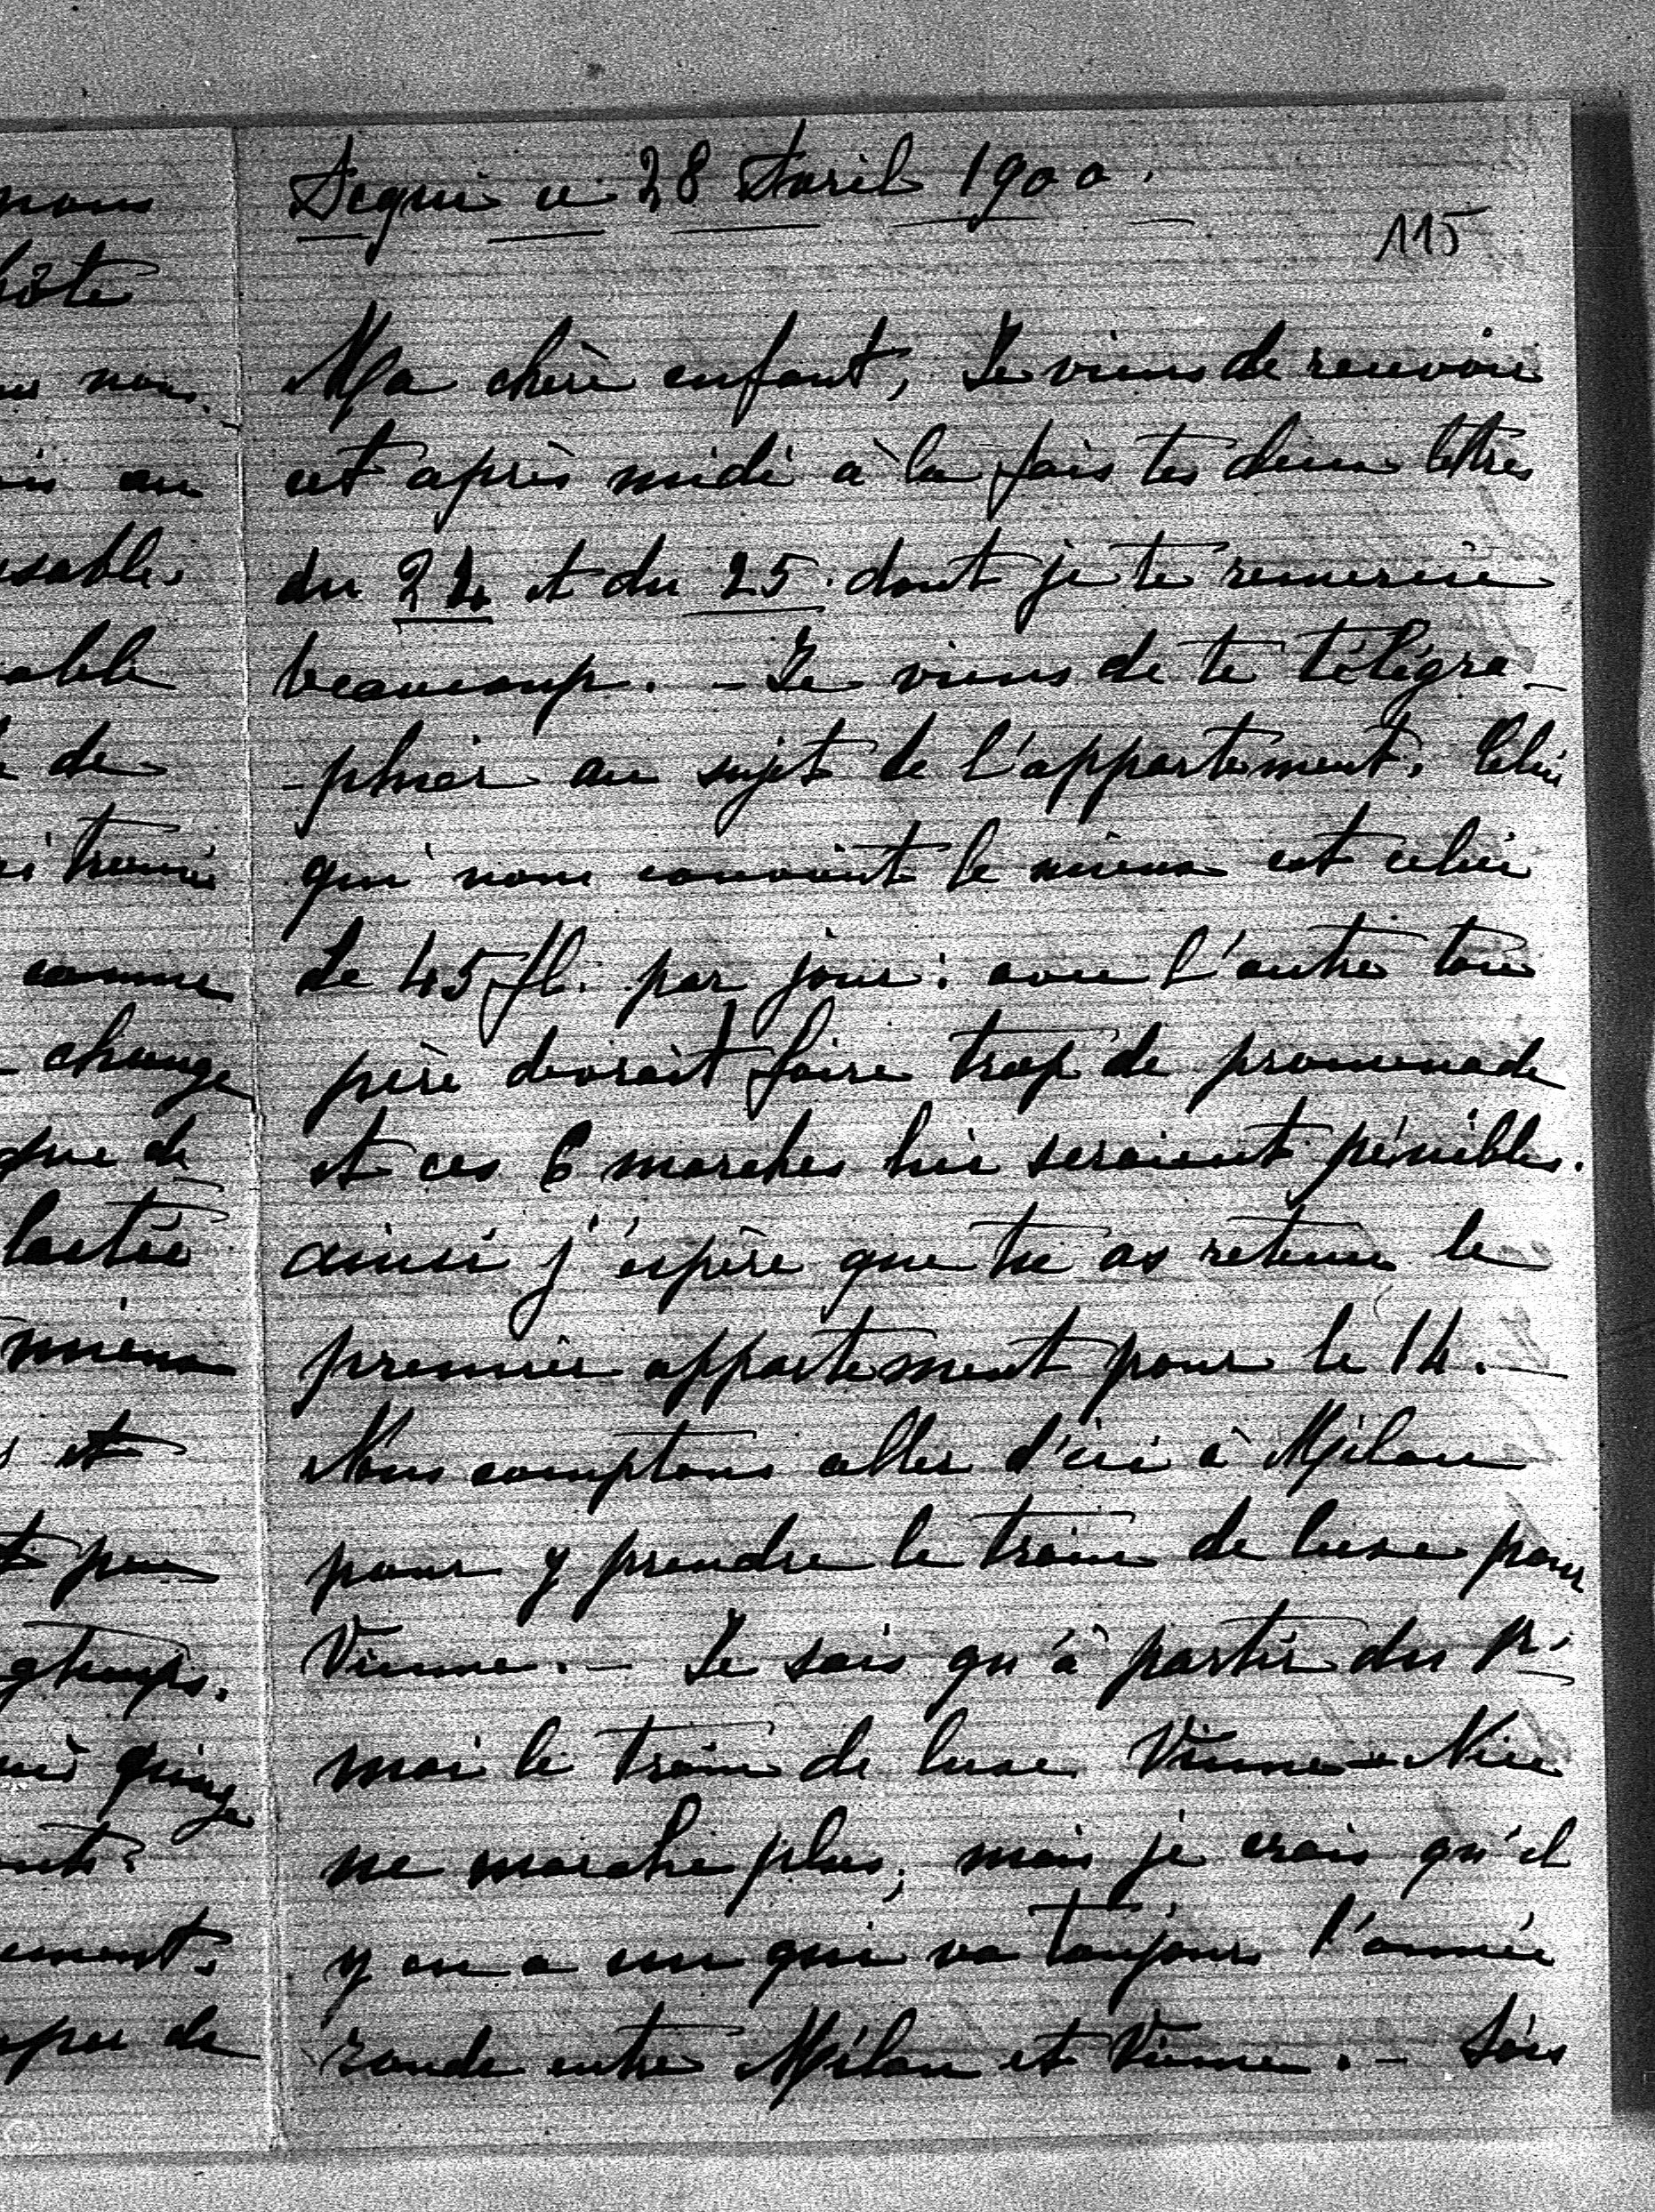 Acqui ce 28 Avril 1900.
115
Ma chère enfant, Je viens de recevoir
cet après midi à la fois tes deux lettres
du 24 et du 25. dont je te remercie
beaucoup. - Je viens de te télégra-
-phier au sujet de l'appartement. Celui
qui nous convient le mieux est celui
de 45 fl. par jour: avec l'autre ton
père devrait faire trop de promenade
et ces 6 marches lui seraient pénibles.
ainsi j'espère que tu as retenu le
premier appartement pour le 14. -
Nous comptons aller d'ici à Milan
pour y prendre le train de luxe pour
Vienne. - Je sais qu'à partir du pr.
mai le train de luxe Vienne-Nice
ne marche plus, mais je crois qu'il
y en a un qui va toujours l'année
ronde entre Milan et Vienne. - Sois
nous
hôte
nous
able
de
comme
change
que de
lactée
mieux
et
quinze
de